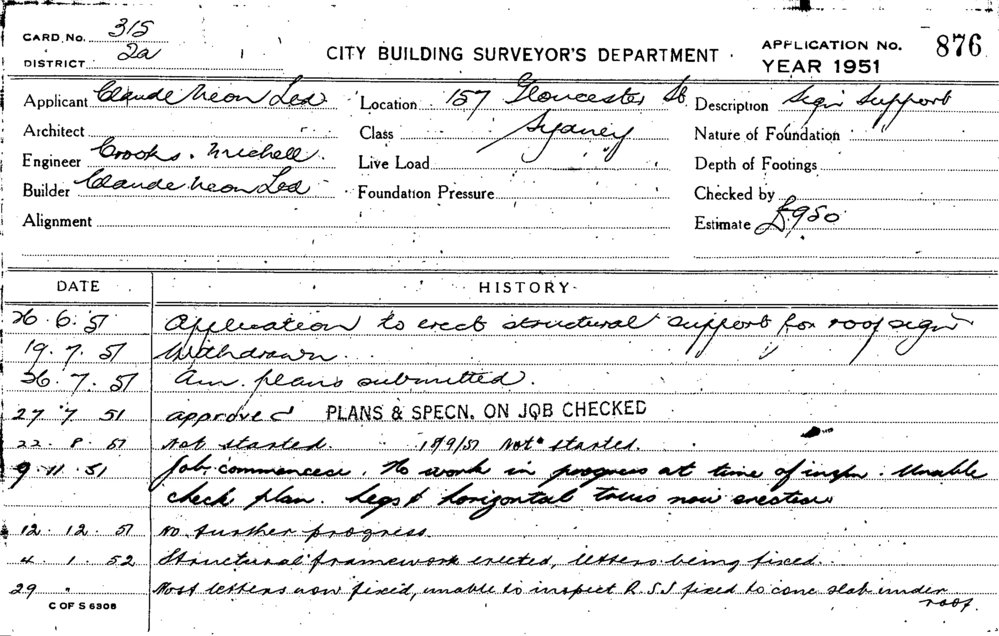 CARD No. 315
DISTRICT 2a
CITY BUILDING SURVEYOR'S DEPARTMENT
APPLICATION No. 876
YEAR 1951
Applicant Claude Neon Led
Location 157 Gloucester St
Description Sign Support
Architect
Class Sydney
Nature of Foundation
Engineer Crooks. Michell.
Live Load
Depth of Footings
Builder Claude Neon Led
Foundation Pressure
Checked by
Alignment
Estimate £950
DATE HISTORY
26.6.51 Application to erect structural support for roof sign
19.7.51 Withdrawn
26.7.51 Am. plans submitted.
27.7.51 approved PLANS & SPECN. ON JOB CHECKED
22.8.51 Not started. 18/9/51 Not started.
9.11.51 Job commenced. No work in progress at time of inspn. Unable
check plan. Legs & horizontal now erected
12.12.51 No further progress.
4.1.52 Structural framework erected, letters being fixed.
29 " Most letters now fixed, unable to inspect R.S.J fixed to conc slab under
roof.
C OF S 6308